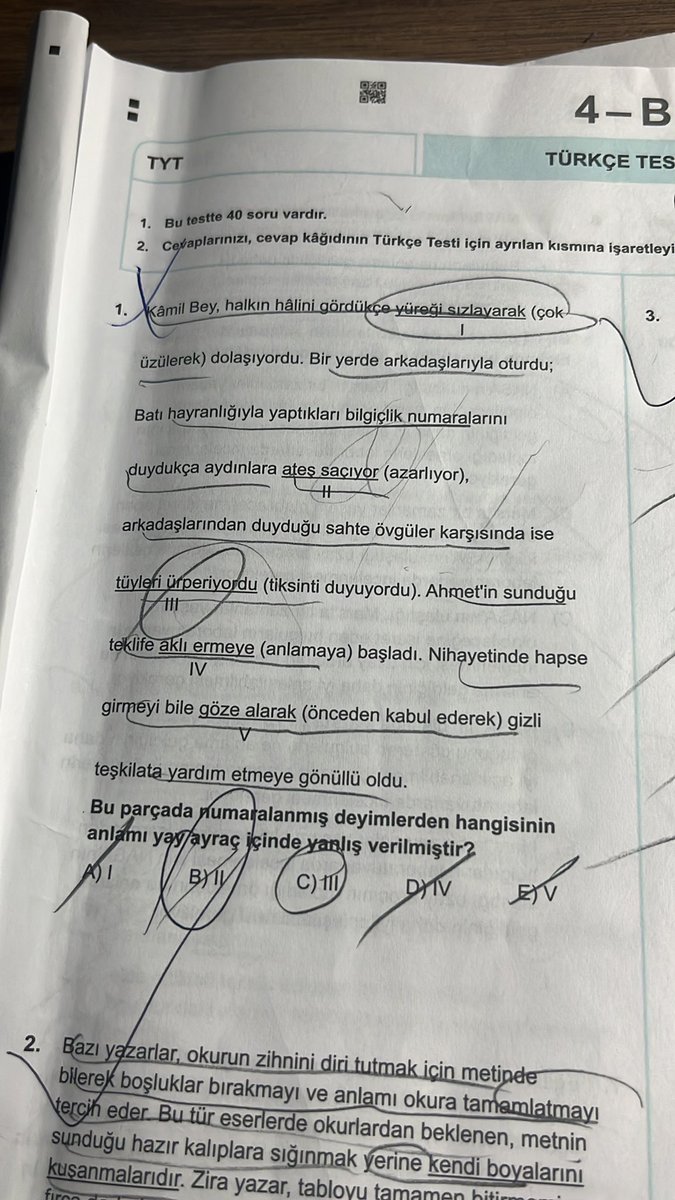 4 – B
TYT
TÜRKÇE TES
1. Bu testte 40 soru vardır.
2. Cevaplarınızı, cevap kâğıdının Türkçe Testi için ayrılan kısmına işaretleyi
1. Kâmil Bey, halkın hâlini gördükçe yüreği sızlayarak (çok
I
üzülerek) dolaşıyordu. Bir yerde arkadaşlarıyla oturdu;
Batı hayranlığıyla yaptıkları bilgiçlik numaralarını
duydukça aydınlara ateş saçıyor (azarlıyor),
II
arkadaşlarından duyduğu sahte övgüler karşısında ise
tüyleri ürperiyordu (tiksinti duyuyordu). Ahmet'in sunduğu
III
teklife aklı ermeye (anlamaya) başladı. Nihayetinde hapse
IV
girmeyi bile göze alarak (önceden kabul ederek) gizli
V
teşkilata yardım etmeye gönüllü oldu.
Bu parçada numaralanmış deyimlerden hangisinin
anlamı yay ayraç içinde yanlış verilmiştir?
A) I B) II C) III D) IV E) V
2. Bazı yazarlar, okurun zihnini diri tutmak için metinde
bilerek boşluklar bırakmayı ve anlamı okura tamamlatmayı
tercih eder. Bu tür eserlerde okurlardan beklenen, metnin
sunduğu hazır kalıplara sığınmak yerine kendi boyalarını
kuşanmalarıdır. Zira yazar, tabloyu tamamen
3.